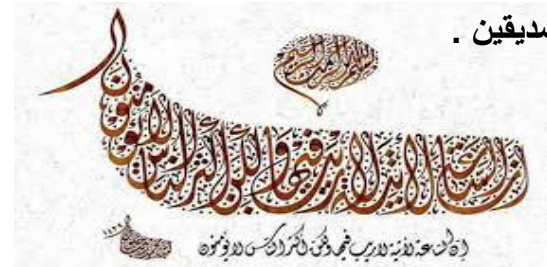 صديقين .
بسم الله الرحمن الرحيم
إن الساعة لآتية لا ريب فيها ولكن أكثر الناس لا يؤمنون
إن الساعة لآتية لا ريب فيها ولكن أكثر الناس لا يؤمنون